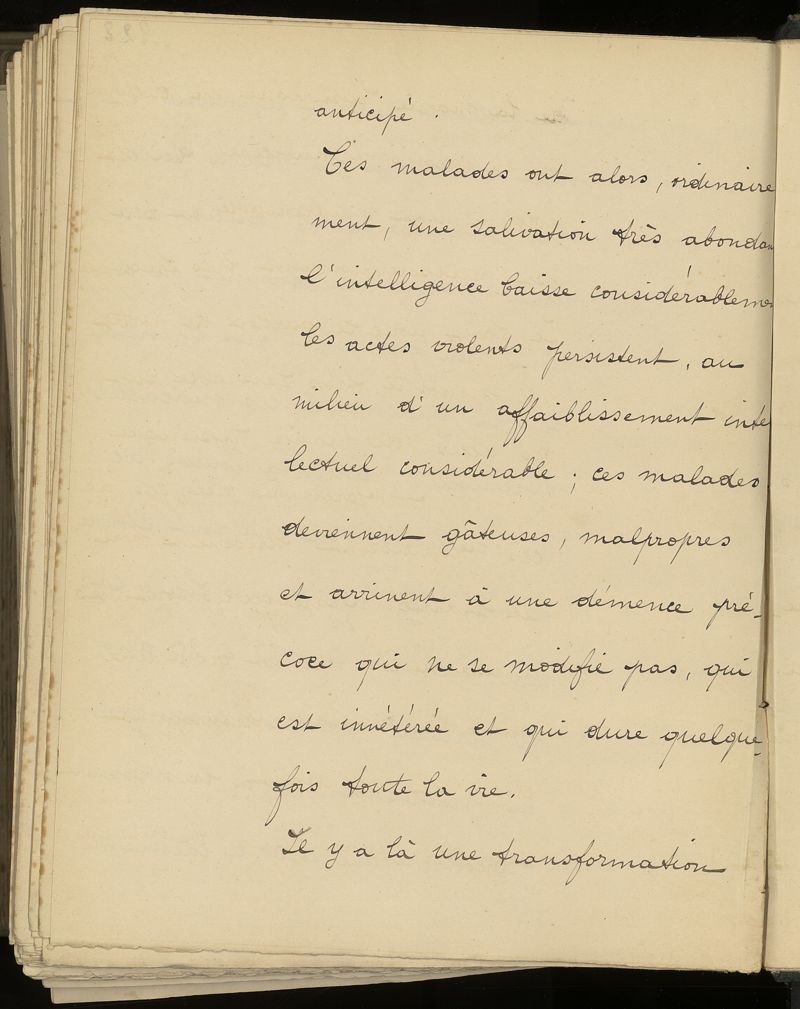 anticipé .
Ces malades ont alors, ordinaire
ment, une salivation très abondan
l'intelligence baisse considérableme
les actes violents persistent, au
milieu d'un affaiblissement inte
lectuel considérable ; ces malades
deviennent gâteuses, malpropres
et arrivent à une démence pré-
coce qui ne se modifie pas, qui
est invétérée et qui dure quelque-
fois toute la vie.
Il y a là une transformation